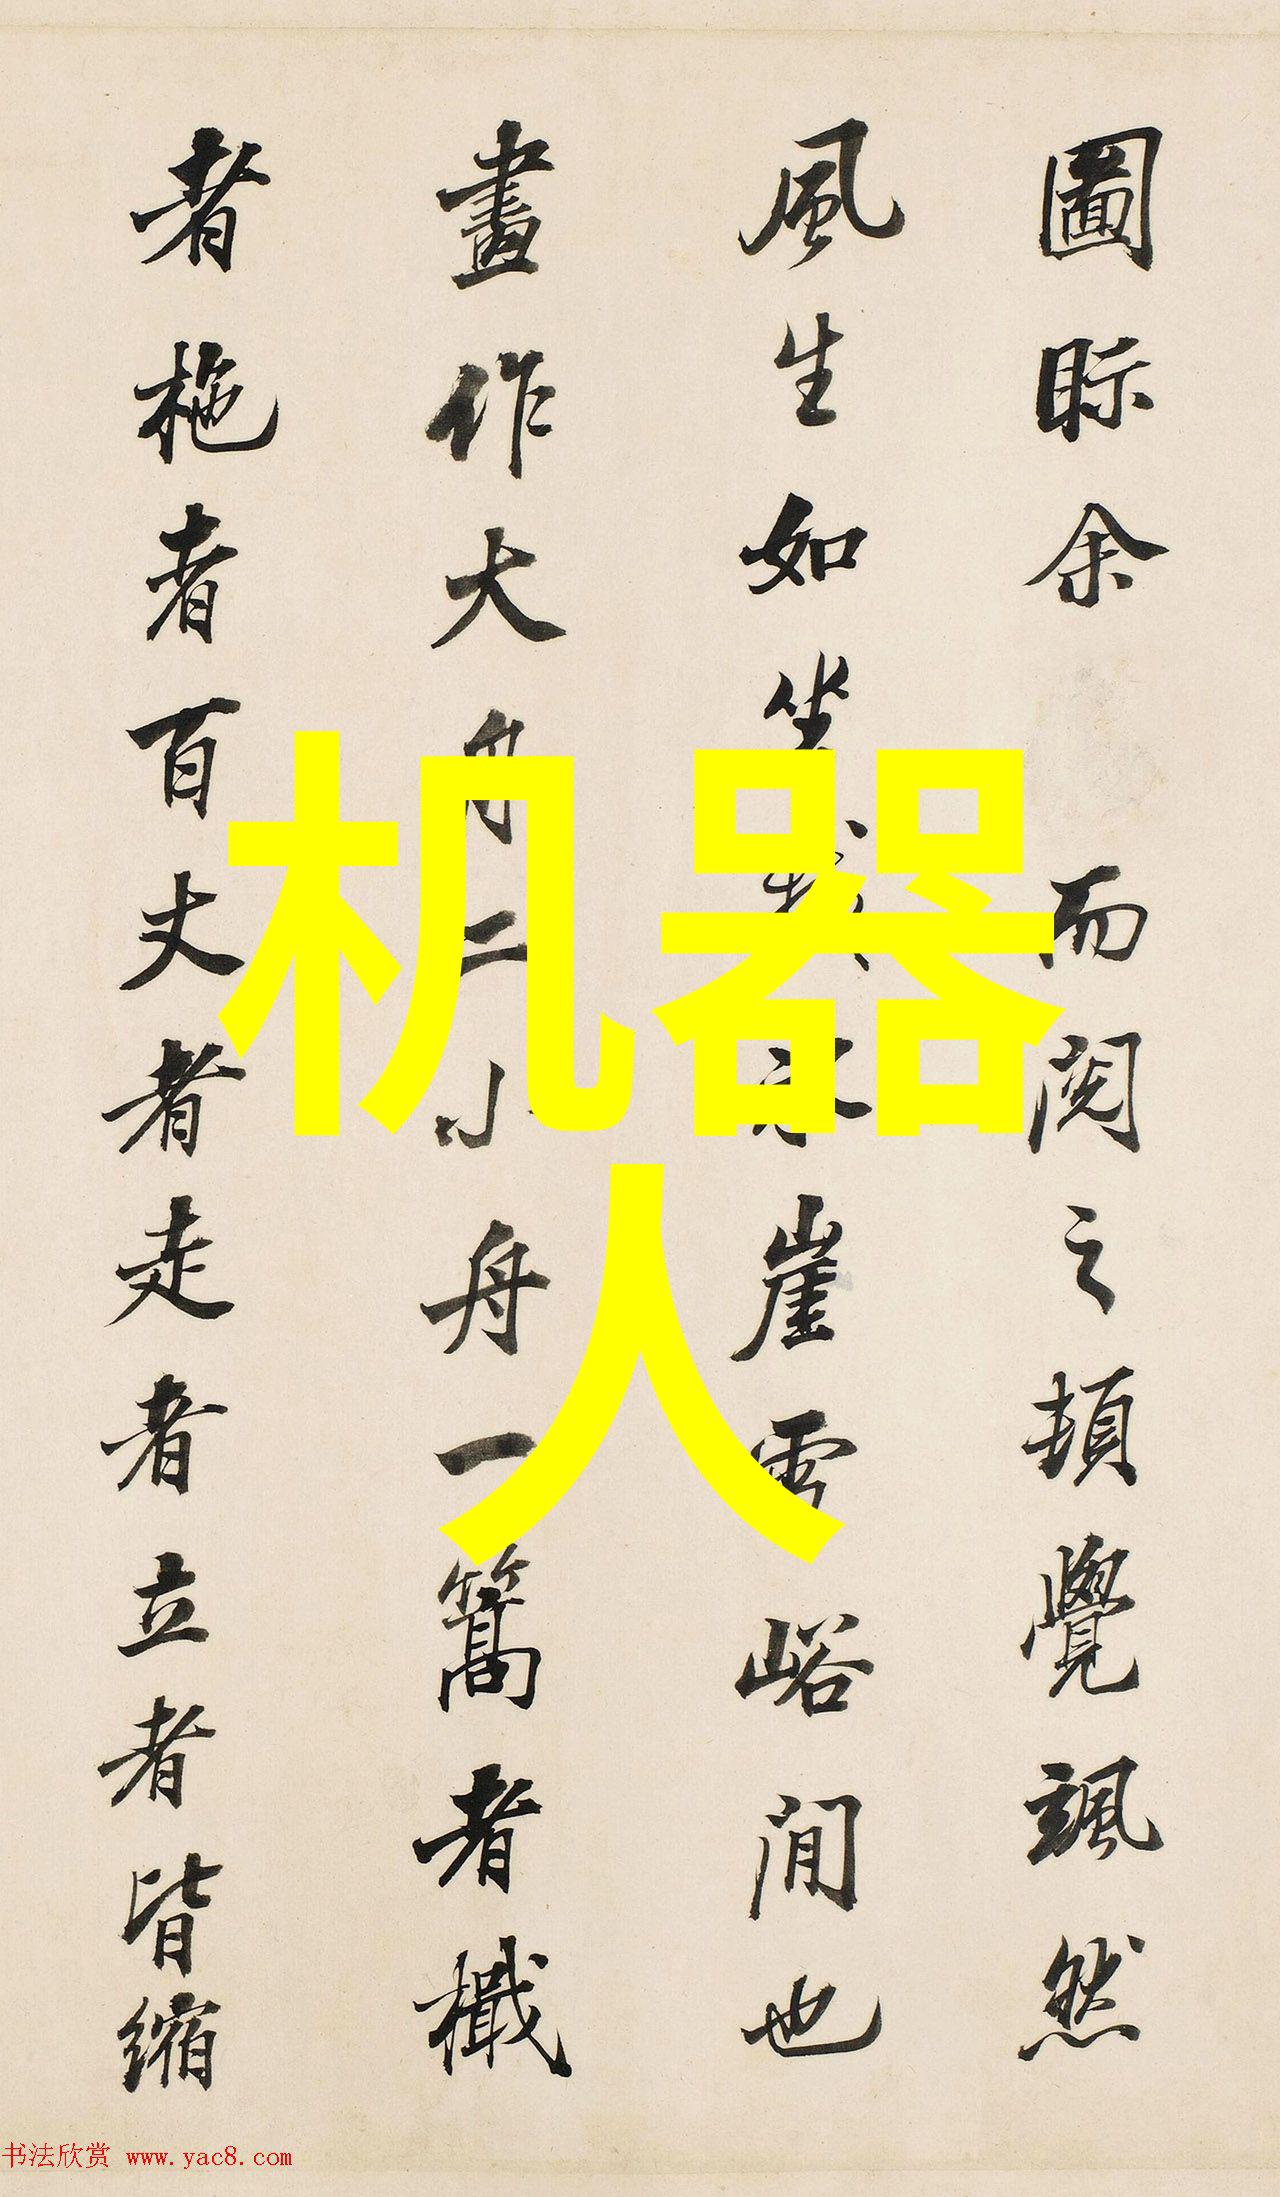 圖眎余而閱之頓覺颯然
風生如坐崖雪峪間也
畫作大舟二小舟一篙者檝
者柂者百丈者走者立者皆縮
机器
人
书法欣赏 www.yac8.com